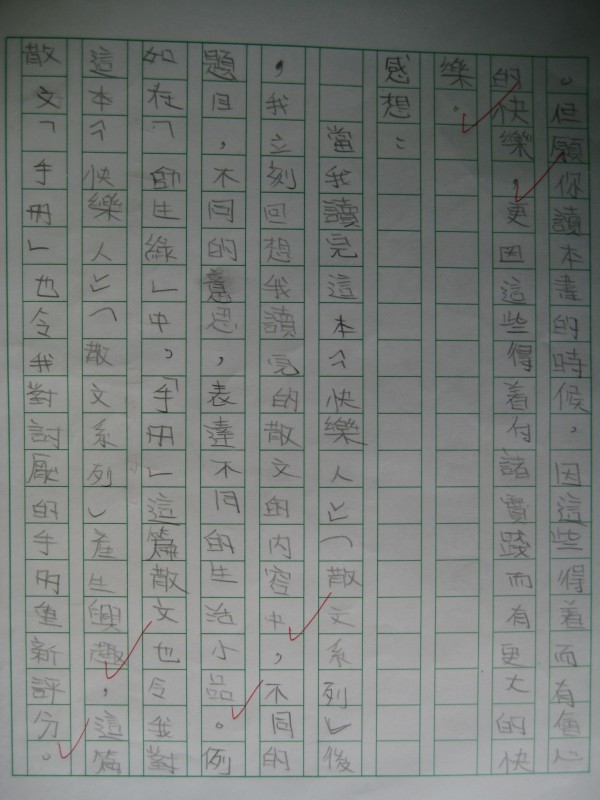 。但願你讀本書的時候，因這些得着而有會心
的快樂，更因這些得着付諸實踐而有更大的快
樂。
感想：
當我讀完這本《快樂人》（散文系列）後
，我立刻回想我讀完的散文的內容中，不同的
題目，不同的意思，表達不同的生活小品。例
如在「師生緣」中，「手冊」這篇散文也令我對
這本《快樂人》（散文系列）產生興趣，這篇
散文「手冊」也令我對討厭的手冊重新評分。